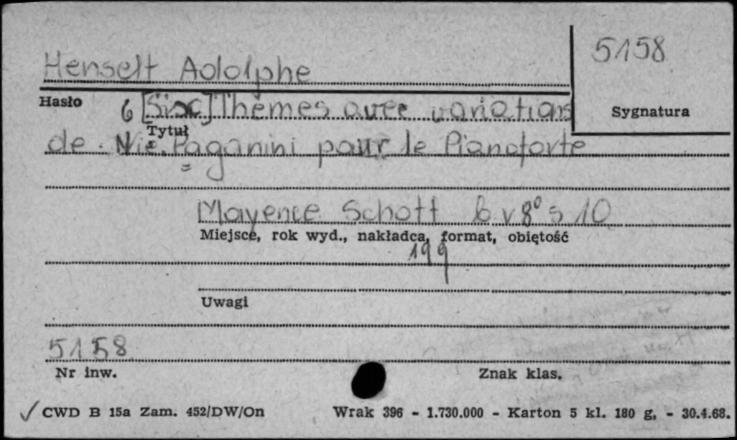 5158
Henselt Adolphe
Hasło
6 [Sisc] Themes avec variations
Sygnatura
Tytuł
de Nic. Paganini pour le Pianoforte
Mayence Schott b v 8° s 10
Miejsce, rok wyd., nakładca, format, objętość
199
Uwagi
5158
Nr inw.
Znak klas.
✓ CWD B 15a Zam. 452/DW/On Wrak 396 - 1.730.000 - Karton 5 kl. 180 g. - 30.4.68.